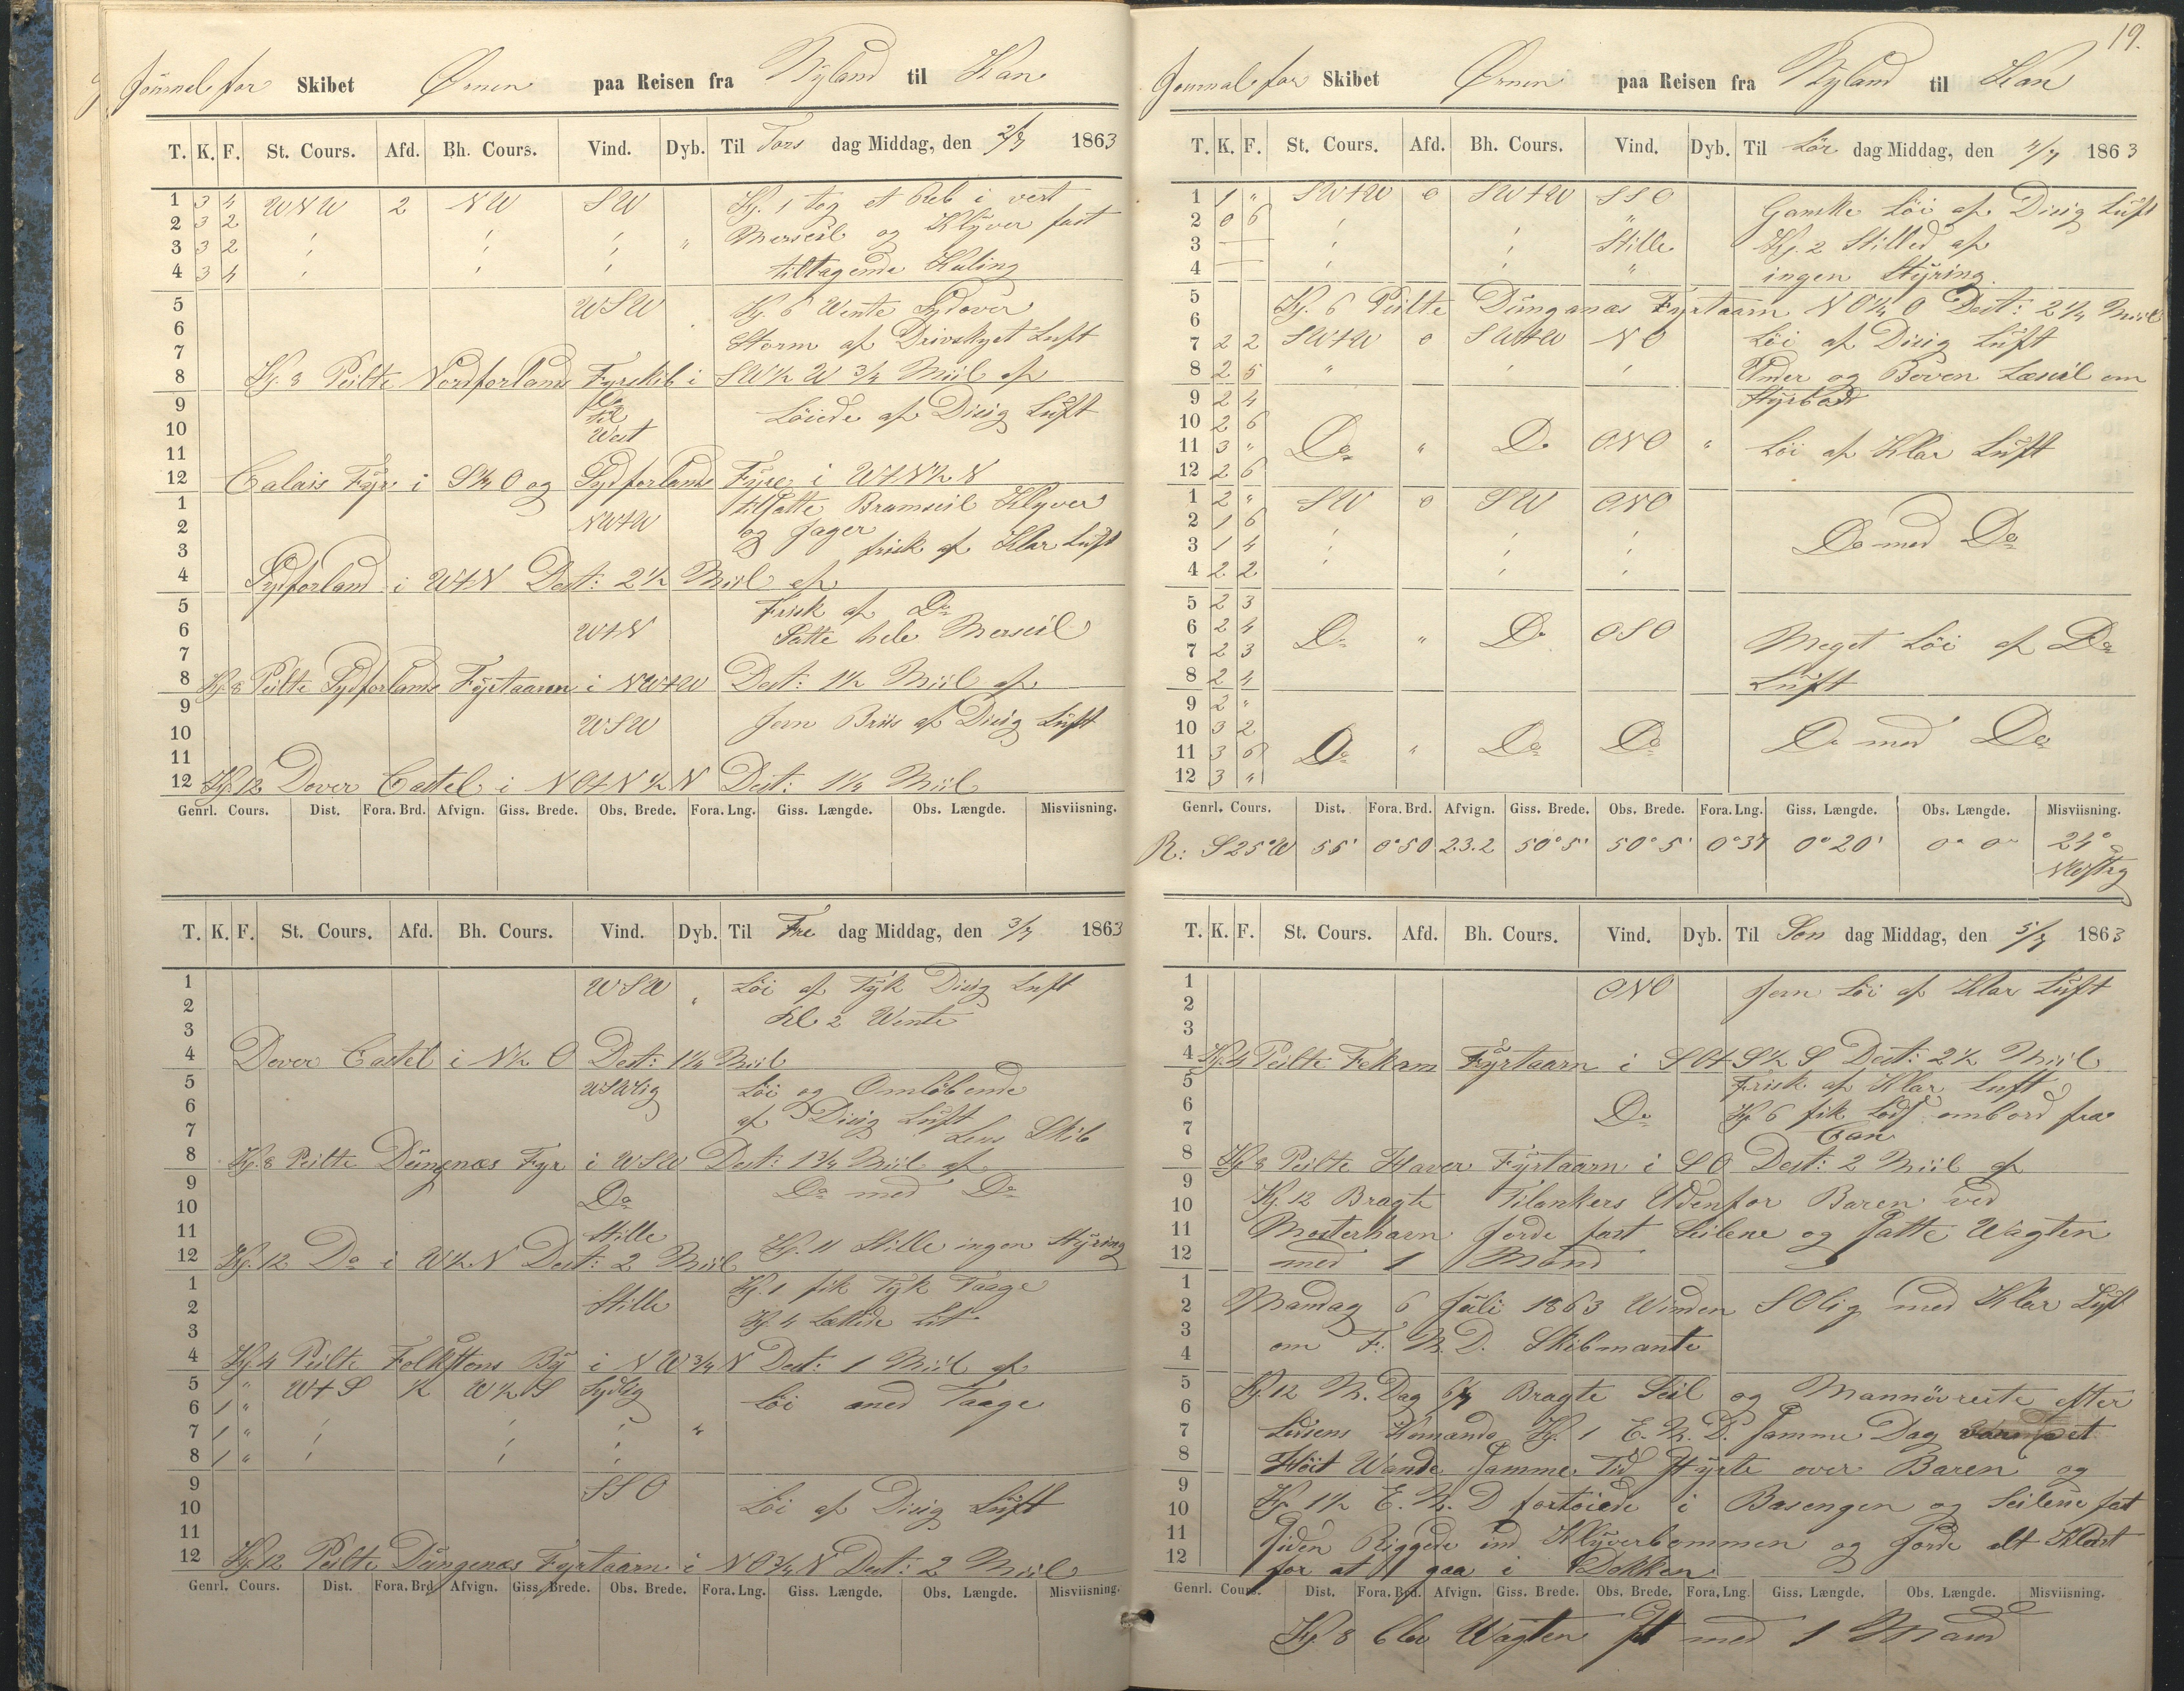 Journal for Skibet Ørnen paa Reisen fra Nyland til Kan
T. K. F. St. Cours. Afd. Bh. Cours. Vind. Dyb. Til Tors dag Middag, den 2/7 1863
1 3 4 WNW 2 NW SW Kl. 1 tog et Reb i vert
2 3 2 " " " " Merseil og Klyver fast
3 3 2 " " "
4 3 4 " " " tiltagende Kuling
5 WSW Kl. 6 Wente Sydover
6 Storm af Drivskyet Luft
7
8 Kl. 8 Peilte Nordforlands Fyrskib i SW½W ¾ Miil af
9 Do Löiede af Disig Luft
10 til
West
11
12 Calais Fyr i S¼O og Sydforlands Fyre i WtN½N
1 tilsatte Bramseil Klyver
2 NWtW og Jager
3 frisk af Klar Luft
4 Sydforland i WtN Dest: 2½ Miil af
5 Frisk af Do
6 WtN Satte hele Merseil
7
8 Kl. 8 Peilte Sydforlands Fyrtaarn i NWtW Dest: 1½ Miil af
9
10 WSW Jevn Bris af Disig Luft
11
12 Kl. 12 Dover Castel i NOtN½N Dest: 1¼ Miil
Genrl. Cours. Dist. Fora. Brd. Afvign. Giss. Brede. Obs. Brede. Fora. Lng. Giss. Længde. Obs. Længde. Misviisning.
T. K. F. St. Cours. Afd. Bh. Cours. Vind. Dyb. Til Fre dag Middag, den 3/7 1863
1 WSW " Löi af Tyk Disig Luft
2 Kl 2 Wente
3
4 Dover Castel i N½O Dest: 1¼ Miil
5 WSWlig Löi og Omlöbende
6 af Disig Luft
7 Lens Skib
8 Kl. 8 Peilte Düngnæs Fyr i WSW Dest: 1¾ Miil af
9 Do Do med Do
10
11 Stille Kl. 11 Stille ingen Styring
12 Kl. 12 Do i W½N Dest: 2 Miil
1 Kl. 1 fik Tyk Taage
2 Stille
3 Kl. 4 Lettede Lit
4 Kl. 4 Peilte Folkstons By i NW¾N Dest: 1 Miil af
5 1 " WtS ½ W½S Sydlig Löi med Taage
6 1 "
7 1 " " " " "
8 1 " " " "
9 SSO
10 Löi af Disig Luft
11
12 Kl. 12 Peilte Düngenæs Fyrtaarn i NO¾N Dest: 2 Miil
Genrl. Cours. Dist. Fora. Brd. Afvign. Giss. Brede. Obs. Brede. Fora. Lng. Giss. Længde. Obs. Længde. Misviisning.
19.
Journal for Skibet Ørnen paa Reisen fra Nyland til Kan
T. K. F. St. Cours. Afd. Bh. Cours. Vind. Dyb. Til Lör dag Middag, den 4/7 1863
1 1 " SWtW 0 SWtW SSO Ganske Löi af Disig Luft
2 0 6 " " "
3 — " " Stille Kl. 2 Stilled af
4 — " " " ingen Styring
5 Kl. 6 Peilte Düngenæs Fyrtaarn NO¼O Dest: 2¼ Miil
6
7 2 2 SWtW 0 SWtW NO Löi af Disig Luft
8 2 5 " " " Under og Boven Læseil om
9 2 4 Styrbord
10 2 6
11 3 " Do " Do ONO " Löi af Klar Luft
12 2 6
1 2 " SW 0 SW ONO
2 1 6 " " " Do med Do
3 1 4 " " "
4 2 2 " " "
5 2 3
6 2 4 Do " Do OSO Meget Löi af Do
7 2 3
8 2 4 Luft
9 2 "
10 3 2
11 3 6 Do " Do Do Do med Do
12 3 "
Genrl. Cours. Dist. Fora. Brd. Afvign. Giss. Brede. Obs. Brede. Fora. Lng. Giss. Længde. Obs. Længde. Misviisning.
R: S25°W 55' 0°50 23.2 50°5' 50°5' 0°37 0°20' 0° 0° 24°
NVstlig
T. K. F. St. Cours. Afd. Bh. Cours. Vind. Dyb. Til Søn dag Middag, den 5/7 1863
1 ONO Jevn Löi af Klar Luft
2
3
4 Kl. 4 Peilte Fekam Fyrtaarn i SOtS½S Dest: 2½ Miil
5 Frisk af Klar Luft
6 Do Kl. 6 fik Lods ombord fra
7 Can
8 Kl. 8 Peilte Haver Fyrtaarn i SO Dest: 2 Miil af
9
10 Kl. 12 Bragte Tilankers Udenfor Baren ved
11 Mosterhavn Jorde fast Seilene og Satte Wagten
12 med 1 Mand
1
2 Mandag 6 Juli 1863 Winden SOlig med Klar Luft
3 om F. M. D. Skibmante
4
5 Kl. 12 M. Dag 6/7 Bragte Seil og Mannövrerte efter
6
7 Lodsens Komando Kl. 1 E. M. D. Samme Dag var det
8 Höit Wande Samme Tid Styrte over Baren og
9
10 Kl. 1½ E. M. D fortöiede i Basengen og Seilene fast
11 Siden Riggede ind Klyverbommen og Jorde alt Klart
12 for at gaa i Dokken
Genrl. Cours. Dist. Fora. Brd. Afvign. Giss. Brede. Obs. Brede. Fora. Lng. Giss. Længde. Obs. Længde. Misviisning.
Kl. 8 blev Wagten sat med 1 Mand